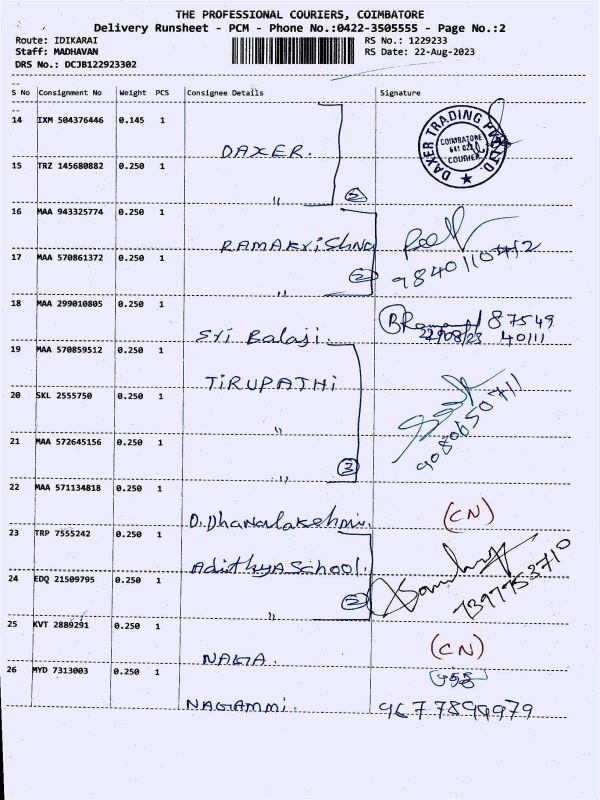 THE PROFESSIONAL COURIERS, COIMBATORE
Delivery Runsheet - PCM - Phone No.:0422-3505555 - Page No.:2
Route: IDIKARAI RS No.: 1229233
Staff: MADHAVAN RS Date: 22-Aug-2023
DRS No.: DCJB122923302
S No Consignment No Weight PCS Consignee Details Signature
14 IXM 504376446 0.145 1 DAXER.
DAXER TRADING PVT LTD.
COIMBATORE
641 022
COURIER
15 TRZ 145680882 0.250 1 ,,
16 MAA 943325774 0.250 1 RAMAKriShNa
17 MAA 570861372 0.250 1 ,, 2
18 MAA 299010805 0.250 1 Sri Balaji. 87549
22/08/23 40111
19 MAA 570859512 0.250 1 TiRUPATHi
20 SKL 2555750 0.250 1 ,, 9080650711
21 MAA 572645156 0.250 1 ,, 3
22 MAA 571134818 0.250 1 D.Dhanalakshmi. (CN)
23 TRP 7555242 0.250 1 Adithya School.
24 EDQ 21509795 0.250 1 ,, 7397753710
25 KVT 2889291 0.250 1 NAGA. (CN)
26 MYD 7313003 0.250 1 NAGAMMI. 9677899979